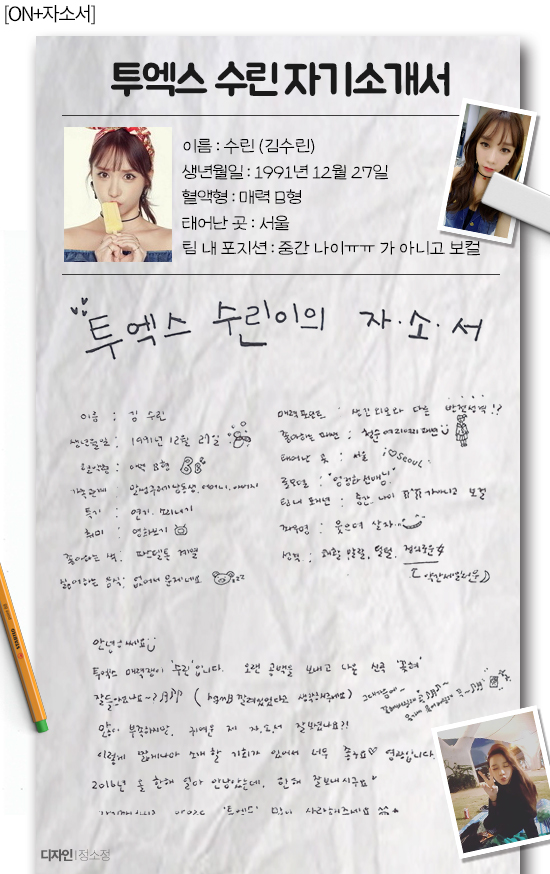 [ON+자소서]
투엑스 수린 자기소개서
이름 : 수린 (김수린)
생년월일 : 1991년 12월 27일
혈액형 : 매력 B형
태어난 곳 : 서울
팀 내 포지션 : 중간 나이ㅠㅠ 가 아니고 보컬
투엑스 수린이의 자·소·서
이름 : 김 수린
생년월일 : 1991년 12월 27일
혈액형 : 매력 B형
가족관계 : 남동생, 어머니, 아버지
특기 : 연기,
취미 : 영화보기
좋아하는 색 : 파스텔톤 계열
싫어하는 음식 : 없어서 문제네요
매력포인트 : 생긴 외모와 다른 반전성격!?
좋아하는 패션 : 청순 여리여리 패션
태어난 곳 : 서울 I ♡ Seoul
롤모델 : "엄정화 선배님"
팀 내 포지션 : 중간 나이 ㅠㅠ 가 아니고 보컬
좌우명 : 웃으며 살자..
성격 : 쾌활 발랄, 털털,
안녕하세요
투엑스 매력쟁이 '수린'입니다. 오랜 공백을 보내고 나온 신곡
잘들으셨나요~?
많이 부족하지만, 귀여운 제 자.소.서 잘보셨나요?!
이렇게 짧게나마 소개할 기회가 있어서 너무 좋구요♡ 영광입니다.
2016년 올 한해 얼마 안남았는데, 한해 잘보내시구요
'투엑스' 많이 사랑해주세요
디자인 | 정소정